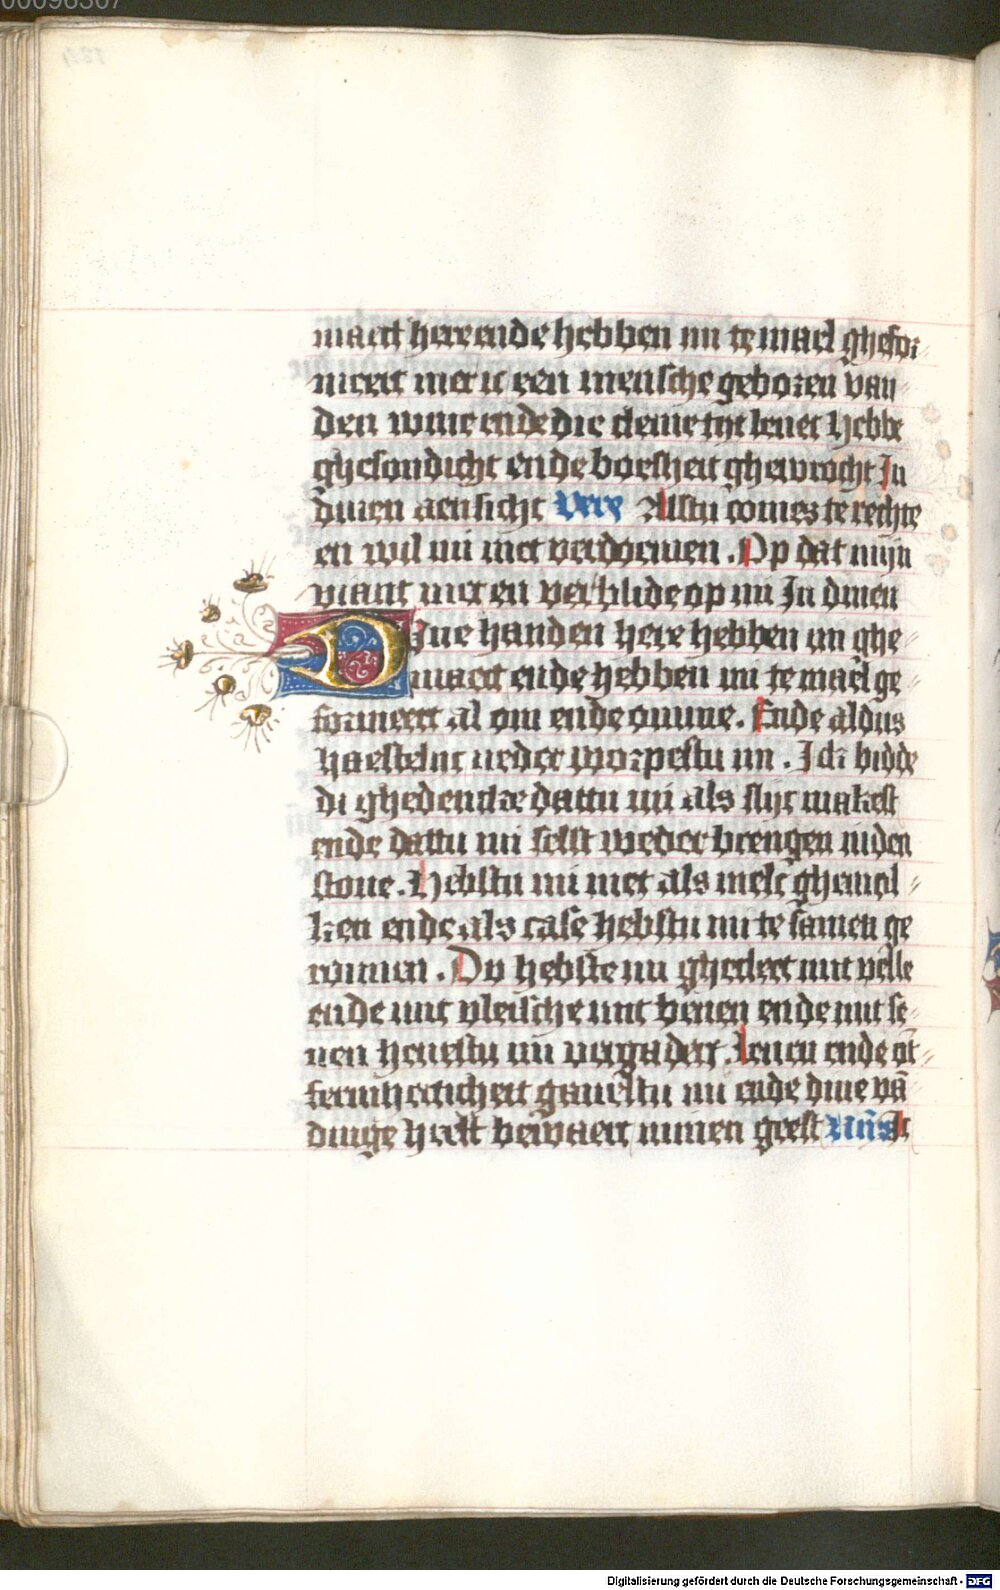 00096307
184
maect here ende hebben mi te mael ghefor
meert mer ic een mensche geboren van
den wiue ende die cleine tijt leuet hebbe
ghesondicht ende bosheit ghewrocht In
dinen aensicht Vers Alstu comes te rechte
en wil mi niet verdoemen . Op dat mijn
viant niet en verblide op mi In dinen
Dine handen here hebben mi ghe
maect ende hebben mi te mael ge
formeert al om ende omme . Ende aldus
haestelic neder worpestu mi . Ic bidde
di ghedencke dattu mi als slijc makest
ende dattu mi selst weder brengen inden
stoue . Hebstu mi niet als melc ghemol
ken ende als case hebstu mi te samen ge
ronnen . Du hebste mi ghecleet mit velle
ende mit vleische mit benen ende mit se
nen heuestu mi vergadert . Leuen ende ōt
fermherticheit gauestu mi ende dine vā
dinge heeft bewaert minen geest
Digitalisierung gefördert durch die Deutsche Forschungsgemeinschaft - DFG